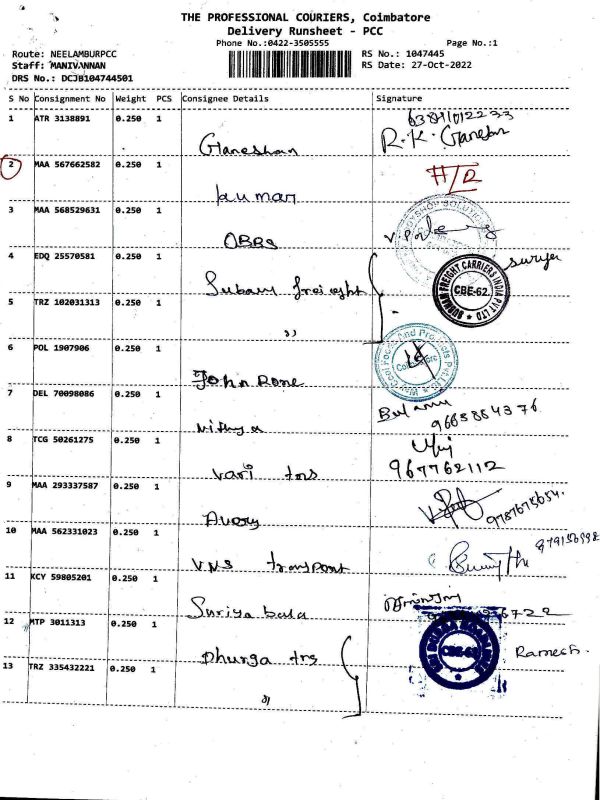 THE PROFESSIONAL COURIERS, Coimbatore
Delivery Runsheet - PCC
Phone No.:0422-3505555 Page No.:1
Route: NEELAMBURPCC RS No.: 1047445
Staff: MANIVANNAN RS Date: 27-Oct-2022
DRS No.: DCJB104744501
S No Consignment No Weight PCS Consignee Details Signature
1 ATR 3138891 0.250 1 Ganeshan R.K. Ganesh
2 MAA 567662582 0.250 1 kumar
3 MAA 568529631 0.250 1 OBRS
4 EDQ 25570581 0.250 1 Subam freight surya
BURHAM FREIGHT CARRIERS INDIA PVT LTD
CBE-62.
5 TRZ 102031313 0.250 1 "
6 POL 1907906 0.250 1 John Rone
Coimbatore
7 DEL 70098086 0.250 1 Nithya
8 TCG 50261275 0.250 1 Vari tns 967762112
9 MAA 293337587 0.250 1 Avery
10 MAA 562331023 0.250 1 VNS transport
11 KCY 59805201 0.250 1 Suriya bala
12 MTP 3011313 0.250 1 Dhurga trs Ramesh.
13 TRZ 335432221 0.250 1 "